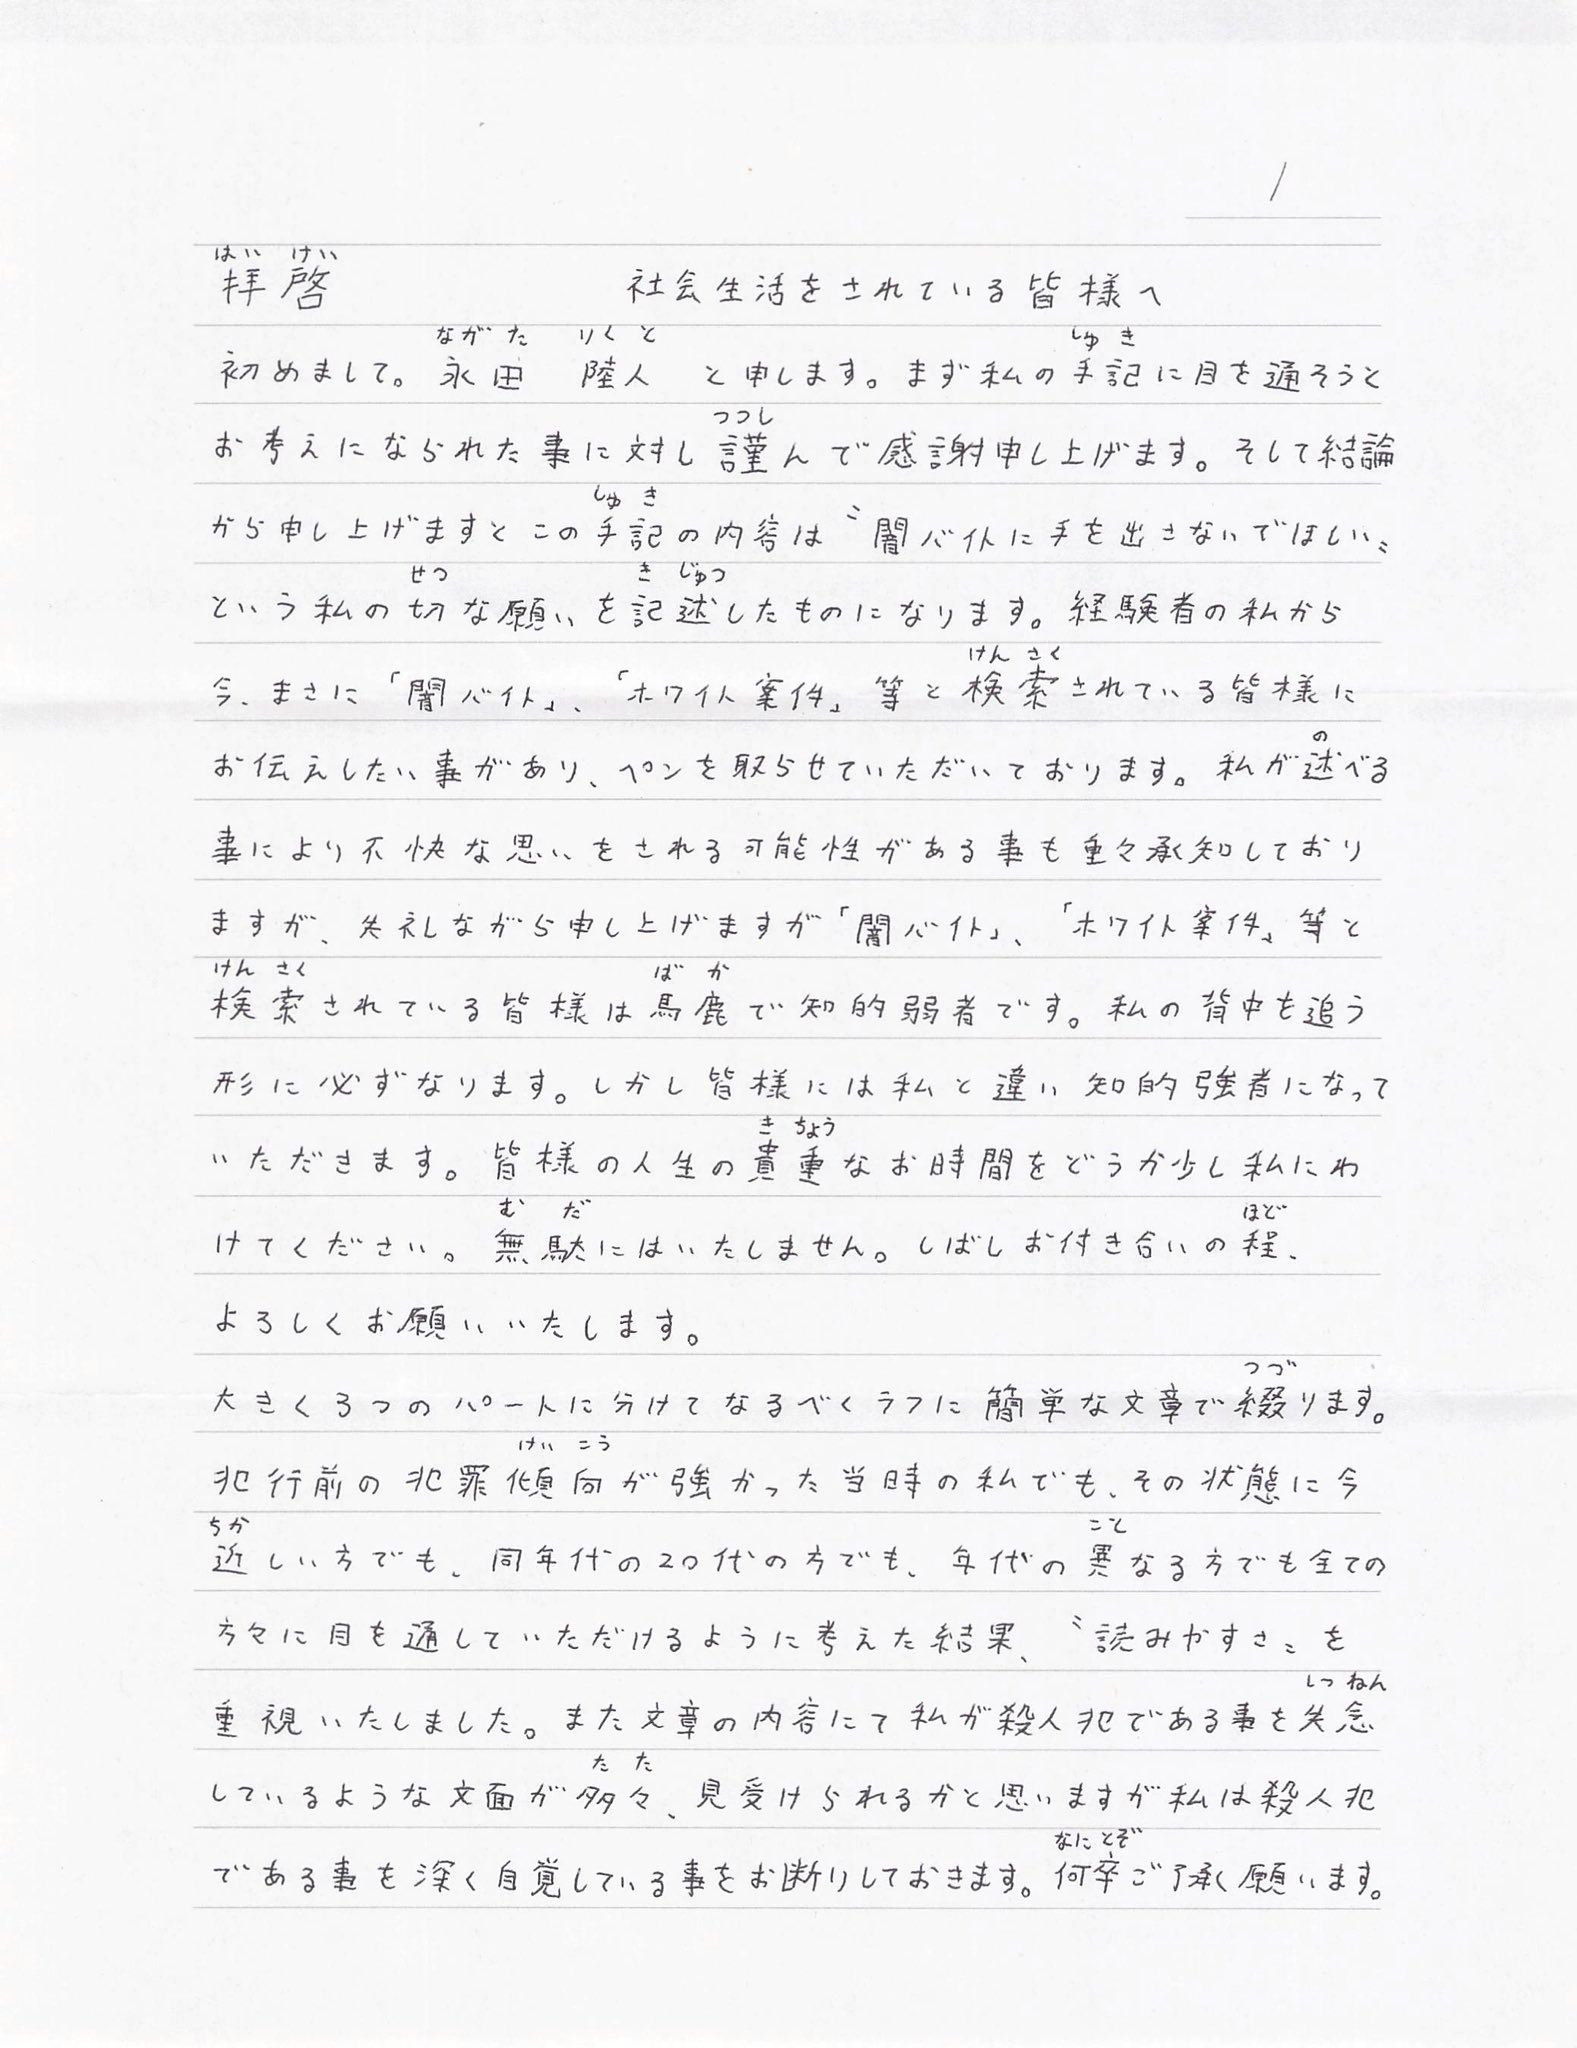 1
はい けい
拝啓 社会生活をされている皆様へ
ながた りくと しゅき
初めまして。永田 陸人 と申します。まず私の手記に目を通そうと
つつし
お考えになられた事に対し謹んで感謝申し上げます。そして結論
しゅき
から申し上げますとこの手記の内容は〝闇バイトに手を出さないでほしい〟
せつ き じゅつ
という私の切な願いを記述したものになります。経験者の私から
けん さく
今、まさに「闇バイト」、「ホワイト案件」等と検索されている皆様に
の
お伝えしたい事があり、ペンを取らせていただいております。私が述べる
事により不快な思いをされる可能性がある事も重々承知しており
ますが、失礼ながら申し上げますが「闇バイト」、「ホワイト案件」等と
けん さく ば か
検索されている皆様は馬鹿で知的弱者です。私の背中を追う
形に必ずなります。しかし皆様には私と違い知的強者になって
き ちょう
いただきます。皆様の人生の貴重なお時間をどうか少し私にわ
む だ ほど
けてください。無駄にはいたしません。しばしお付き合いの程、
よろしくお願いいたします。
つづ
大きく3つのパートに分けてなるべくラフに簡単な文章で綴ります。
けい こう
犯行前の犯罪傾向が強かった当時の私でも、その状態に今
ちか こと
近しい方でも、同年代の20代の方でも、年代の異なる方でも全ての
方々に目を通していただけるように考えた結果、〝読みやすさ〟を
しつ ねん
重視いたしました。また文章の内容にて私が殺人犯である事を失念
た た
しているような文面が多々、見受けられるかと思いますが私は殺人犯
なにとぞ
である事を深く自覚している事をお断りしておきます。何卒ご了承願います。